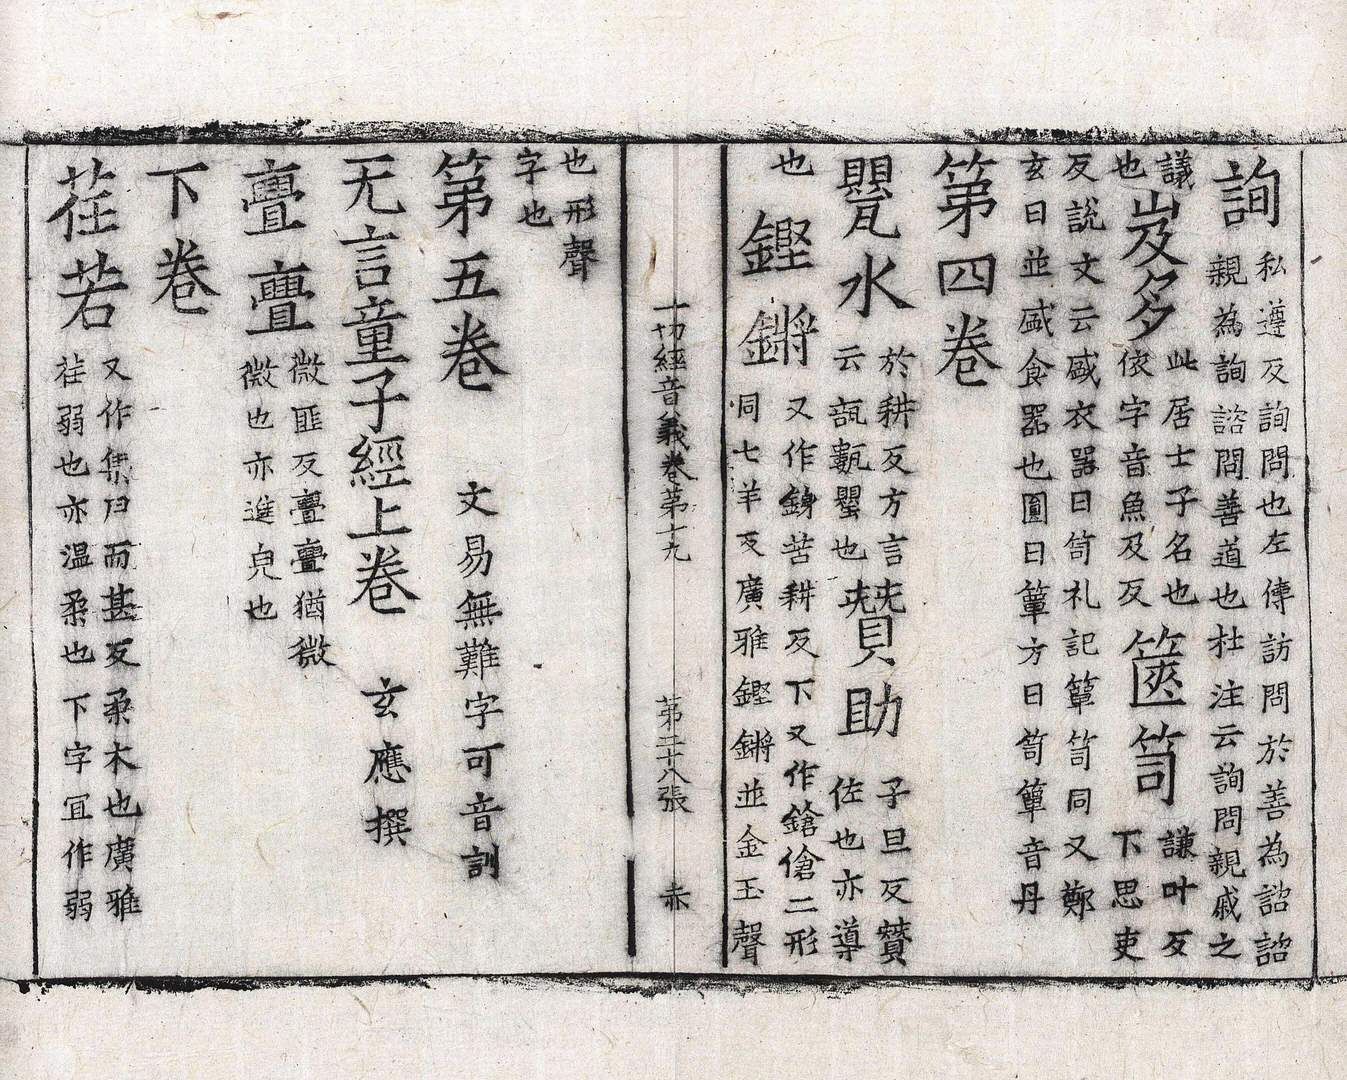 詢 私遵反詢問也左傳訪問於善為諮諮
親為詢諮問善道也杜注云詢問親戚之
議
也 岌多 此居士子名也
依字音魚及反 篋笥 謙叶反
下思吏
反說文云盛衣器曰笥礼記簞笥同又鄭
玄曰並盛食器也圓曰簞方曰笥簞音丹
第四卷
甖水 於耕反方言
云瓿甊甖也 賛助 子旦反贊
佐也亦導
也 鏗鏘 又作鍞苦耕反下又作鎗傖二形
同七羊反廣雅鏗鏘並金玉聲
一切經音義卷第十九 第二十八張 赤
也形聲
字也
第五卷 文易無難字可音訓
无言童子經上卷 玄應撰
亹亹 微匪反亹亹猶微
微也亦進皃也
下卷
荏若 又作集同而甚反柔木也廣雅
荏弱也亦溫柔也下字冝作弱